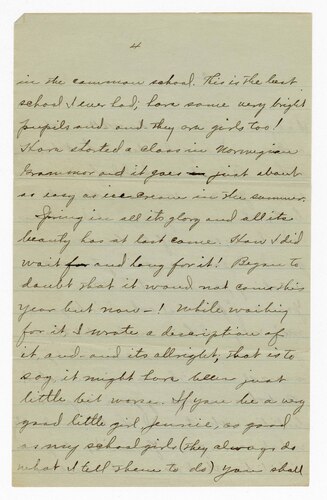 4
in the common school. This is the best
school I ever had; have some very bright
pupils and - and they are girls too!
Have started a class in Norwegian
Grammar and it goes just about
as easy as icecreame in the summer.
Spring in all its glory and all its
beauty has at last come. How I did
wait for and long for it! Began to
doubt that it would not come this
year but now -! While waiting
for it, I wrote a description of
it, and - and its allright, that is to
say, it might have been just
little bit worse. If you be a very
good little girl, Jennie, as good
as my school girls (they always do
what I tell them to do) you shall